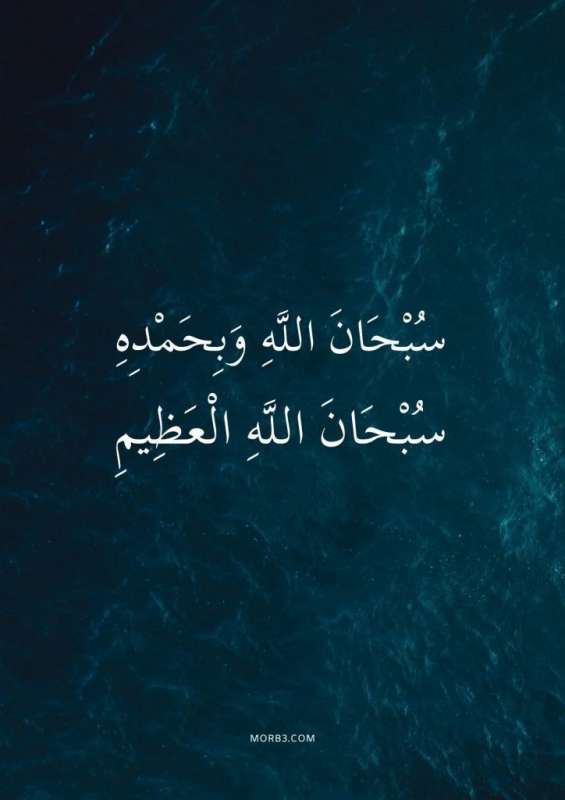 سُبْحَانَ اللَّهِ وَبِحَمْدِهِ
سُبْحَانَ اللَّهِ الْعَظِيمِ
MORB3.COM